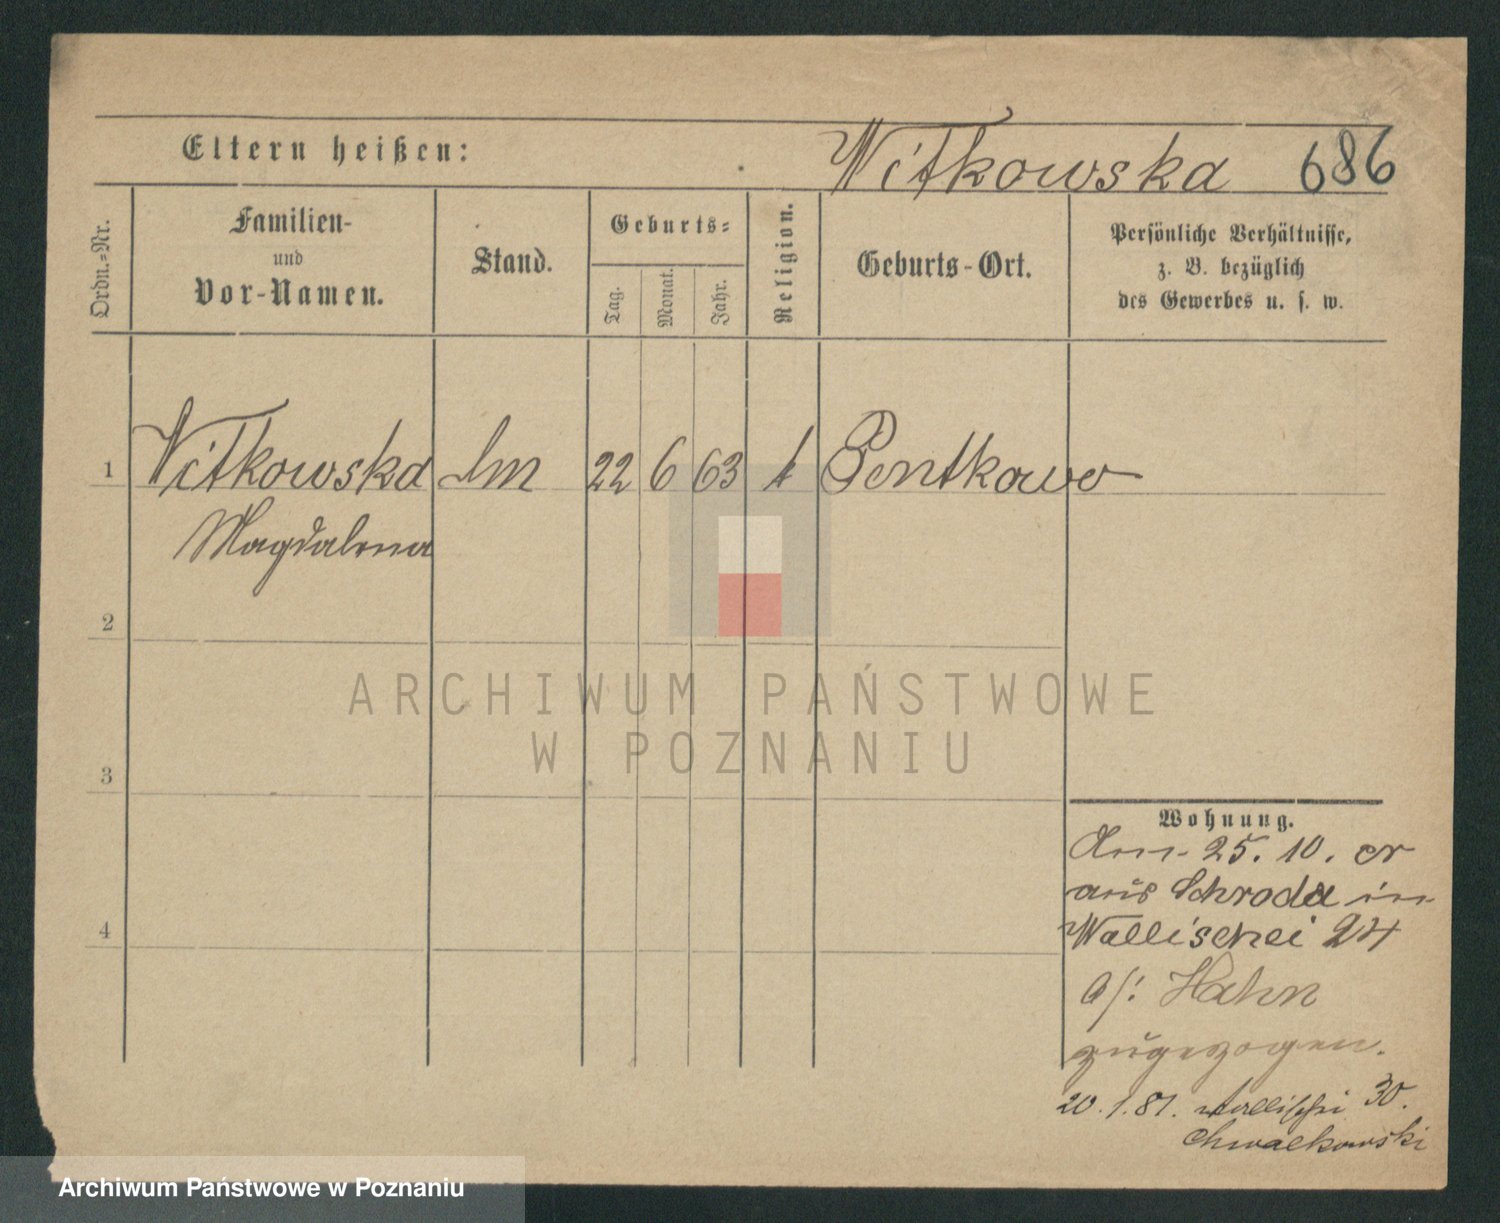 Eltern heißen: Witkowska 686
Ordn.-Nr.
Familien-
und
Vor-Namen.
Stand.
Geburts-
Tag.
Monat.
Jahr.
Religion.
Geburts-Ort.
Persönliche Verhältnisse,
z. B. bezüglich
des Gewerbes u. s. w.
1 Witkowska 22 6 63 k Pentkowo
Magdalena
2
3
4
Wohnung.
Am 25. 10. cr
aus Schroda in
Wallischei 24
b/: Hahn
zugezogen.
20. 1. 81. Wallischei 30.
Chwalkowski
ARCHIWUM PAŃSTWOWE
W POZNANIU
Archiwum Państwowe w Poznaniu